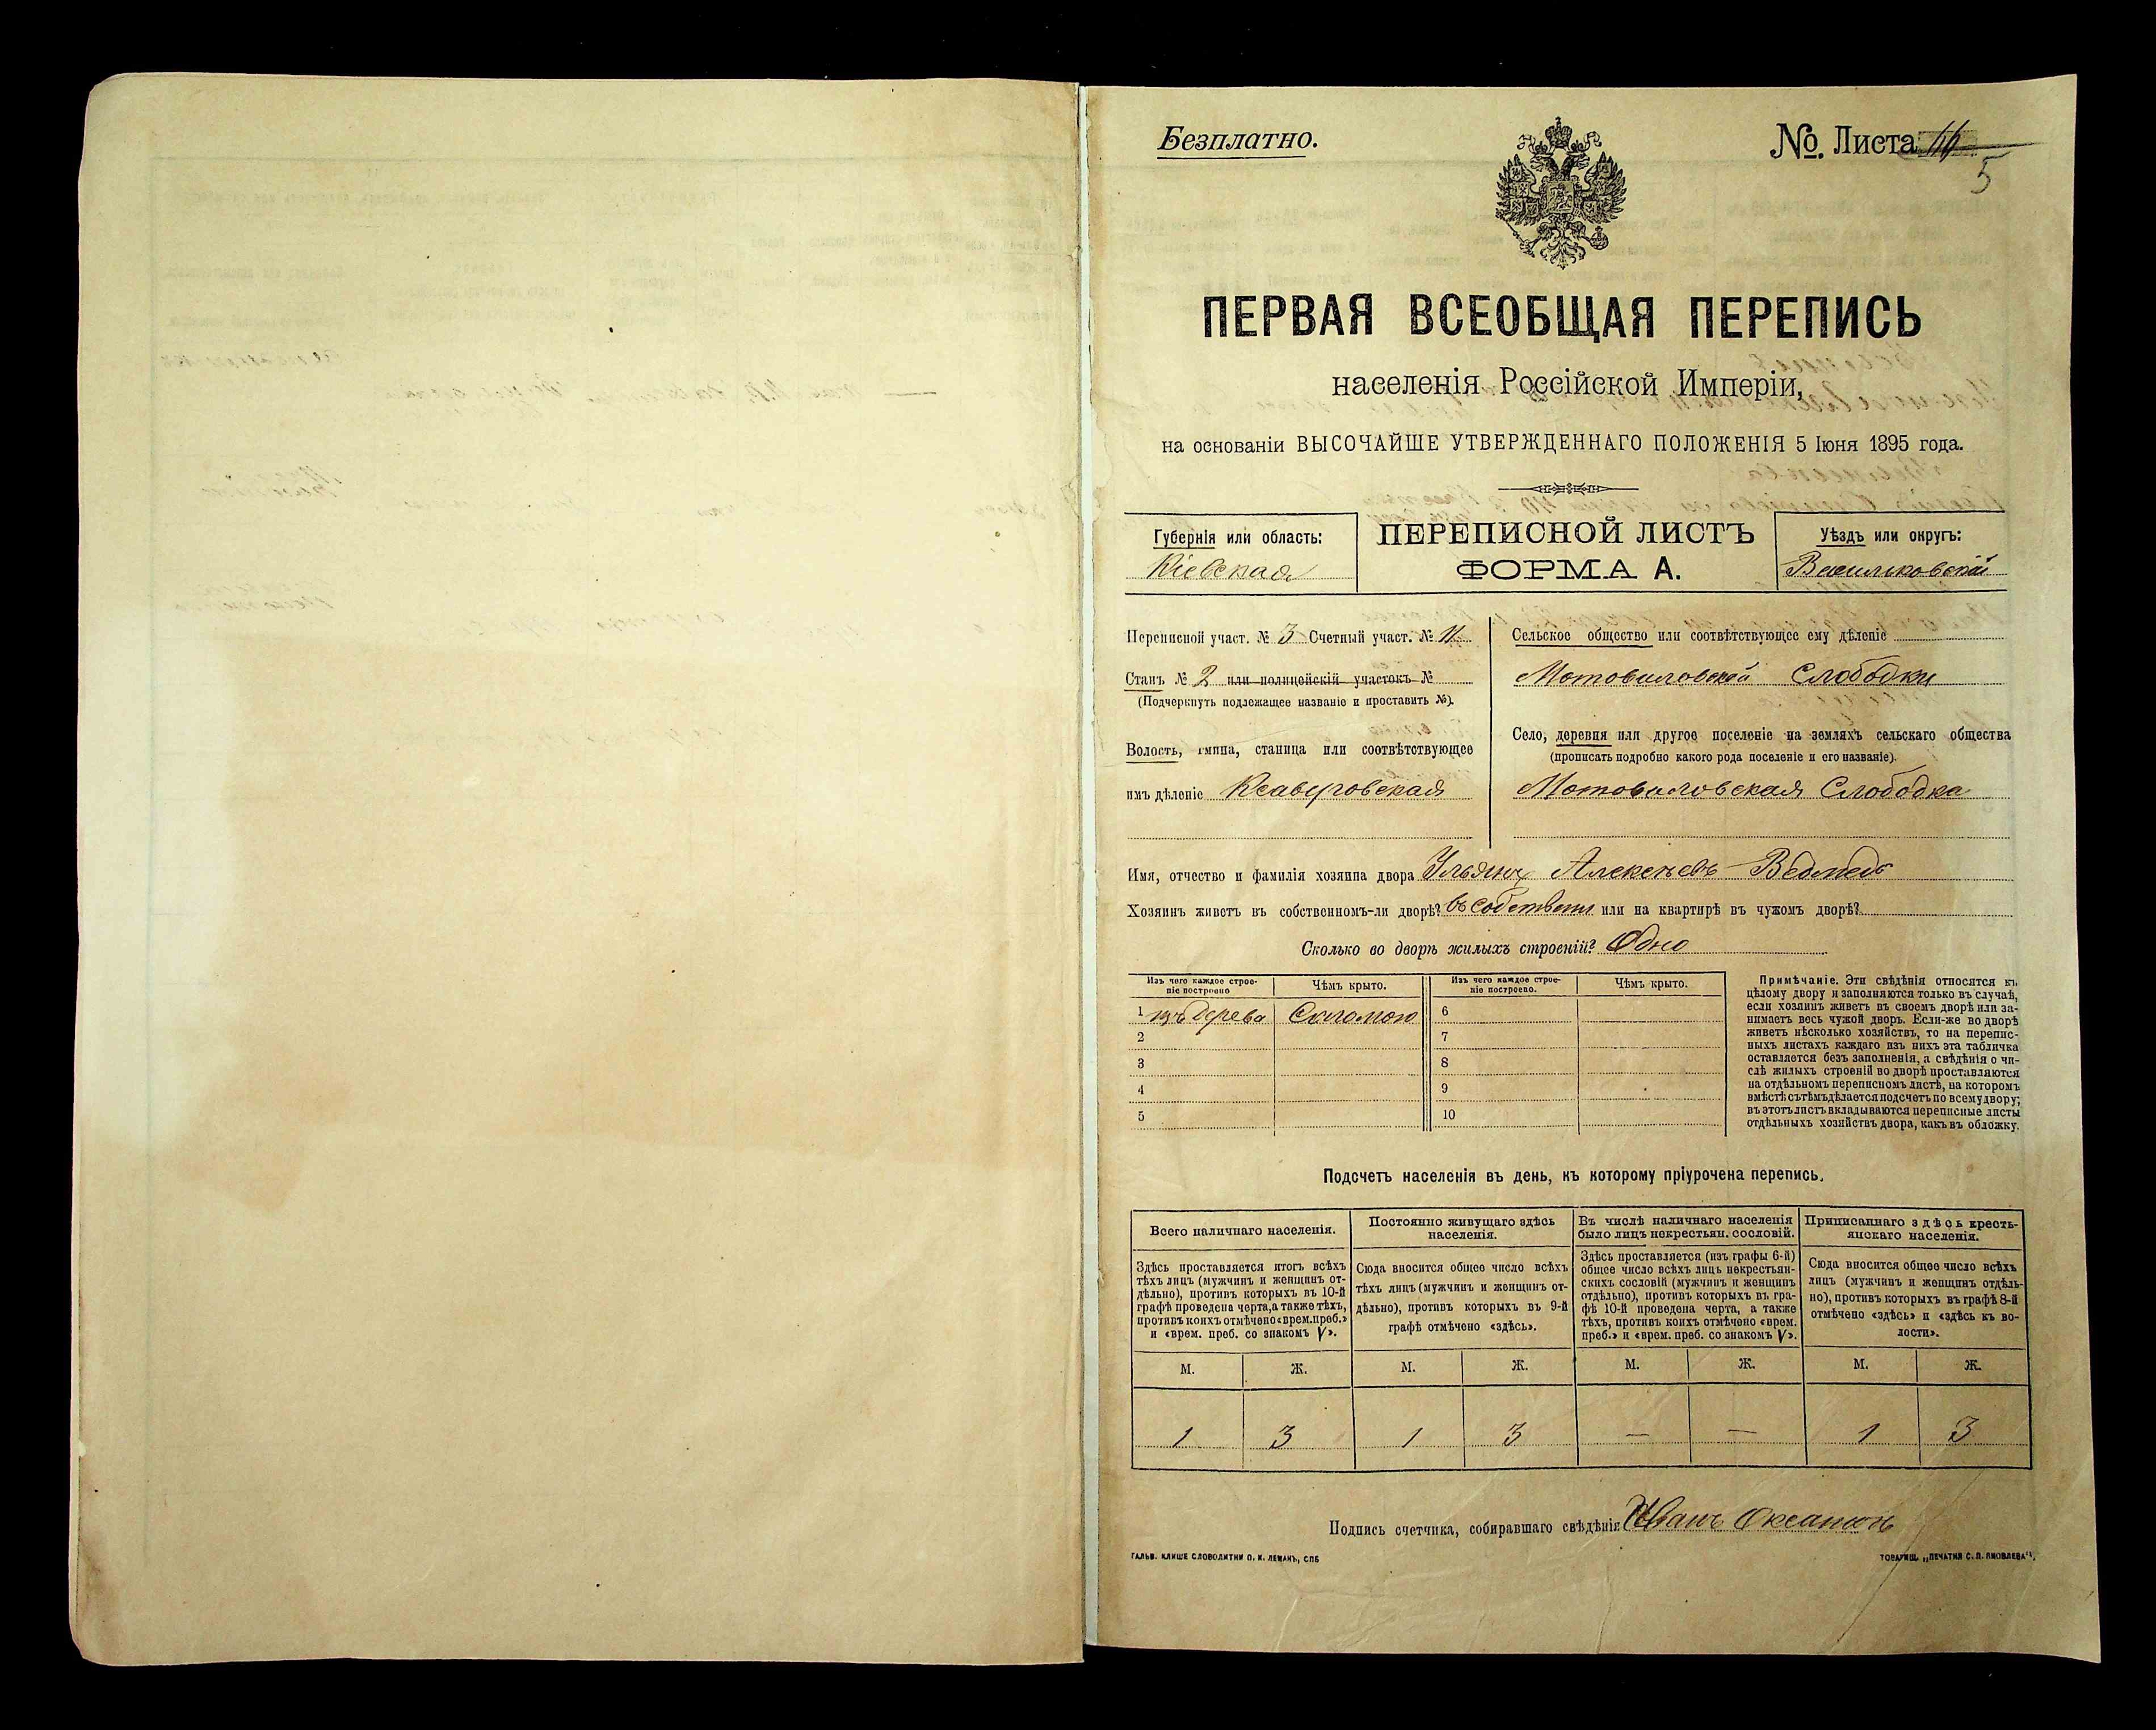 Безплатно.
№. Листа 46
5
ПЕРВАЯ ВСЕОБЩАЯ ПЕРЕПИСЬ
населенія Россійской Имперіи,
на основаніи ВЫСОЧАЙШЕ УТВЕРЖДЕННАГО ПОЛОЖЕНІЯ 5 Іюня 1895 года.
Губернія или область:
Кіевская
ПЕРЕПИСНОЙ ЛИСТЪ
ФОРМА А.
Уѣздъ или округъ:
Васильковскій
Переписной участ. № 3 Счетный участ. № 11
Станъ № 2 или полицейскій участокъ №
(Подчеркнуть подлежащее названіе и проставить №).
Волость, гмина, станица или соотвѣтствующее
имъ дѣленіе Ксаверовская
Сельское общество или соотвѣтствующее ему дѣленіе
Мотовиловской Слободки
Село, деревня или другое поселеніе на земляхъ сельскаго общества
(прописать подробно какого рода поселеніе и его названіе).
Мотовиловская Слободка
Имя, отчество и фамилія хозяина двора Ульянъ Алексѣевъ Ведмедь
Хозяинъ живетъ въ собственномъ-ли дворѣ? въ собствен или на квартирѣ въ чужомъ дворѣ?
Сколько во дворѣ жилыхъ строеній? Одно
Изъ чего каждое строе-
ніе построено
Чѣмъ крыто.
Изъ чего каждое строе-
ніе построено.
Чѣмъ крыто.
1 изъ дерева Соломою 6
2 7
3 8
4 9
5 10
Примѣчаніе. Эти свѣдѣнія относятся къ
цѣлому двору и заполняются только въ случаѣ,
если хозяинъ живетъ въ своемъ дворѣ или за-
нимаетъ весь чужой дворъ. Если-же во дворѣ
живетъ нѣсколько хозяйствъ, то на перепис-
ныхъ листахъ каждаго изъ нихъ эта табличка
оставляется безъ заполненія, а свѣдѣнія о чи-
слѣ жилыхъ строеній во дворѣ проставляются
на отдѣльномъ переписномъ листѣ, на которомъ
вмѣстѣ съ тѣмъ дѣлается подсчетъ по всему двору;
въ этотъ листъ вкладываются переписные листы
отдѣльныхъ хозяйствъ двора, какъ въ обложку.
Подсчетъ населенія въ день, къ которому пріурочена перепись.
Всего наличнаго населенія.
Здѣсь проставляется итогъ всѣхъ
тѣхъ лицъ (мужчинъ и женщинъ от-
дѣльно), противъ которыхъ въ 10-й
графѣ проведена черта, а также тѣхъ,
противъ коихъ отмѣчено «врем. преб.»
и «врем. преб. со знакомъ V».
Постоянно живущаго здѣсь
населенія.
Сюда вносится общее число всѣхъ
тѣхъ лицъ (мужчинъ и женщинъ от-
дѣльно), противъ которыхъ въ 9-й
графѣ отмѣчено «здѣсь».
Въ числѣ наличнаго населенія
было лицъ некрестьян. сословій.
Здѣсь проставляется (изъ графы 6-й)
общее число всѣхъ лицъ некрестьян-
скихъ сословій (мужчинъ и женщинъ
отдѣльно), противъ которыхъ въ гра-
фѣ 10-й проведена черта, а также
тѣхъ, противъ коихъ отмѣчено «врем.
преб.» и «врем. преб. со знакомъ V».
Приписаннаго здѣсь кресть-
янскаго населенія.
Сюда вносится общее число всѣхъ
лицъ (мужчинъ и женщинъ отдѣль-
но), противъ которыхъ въ графѣ 8-й
отмѣчено «здѣсь» и «здѣсь къ во-
лости».
М. Ж. М. Ж. М. Ж. М. Ж.
1 3 1 3 — — 1 3
Подпись счетчика, собиравшаго свѣдѣнія Иванъ
ГАЛЬВ. КЛИШЕ СЛОВОЛИТНИ О. И. ЛЕМАНЪ, СПБ
ТОВАРИЩ. „ПЕЧАТНЯ С. П. ЯКОВЛЕВА".